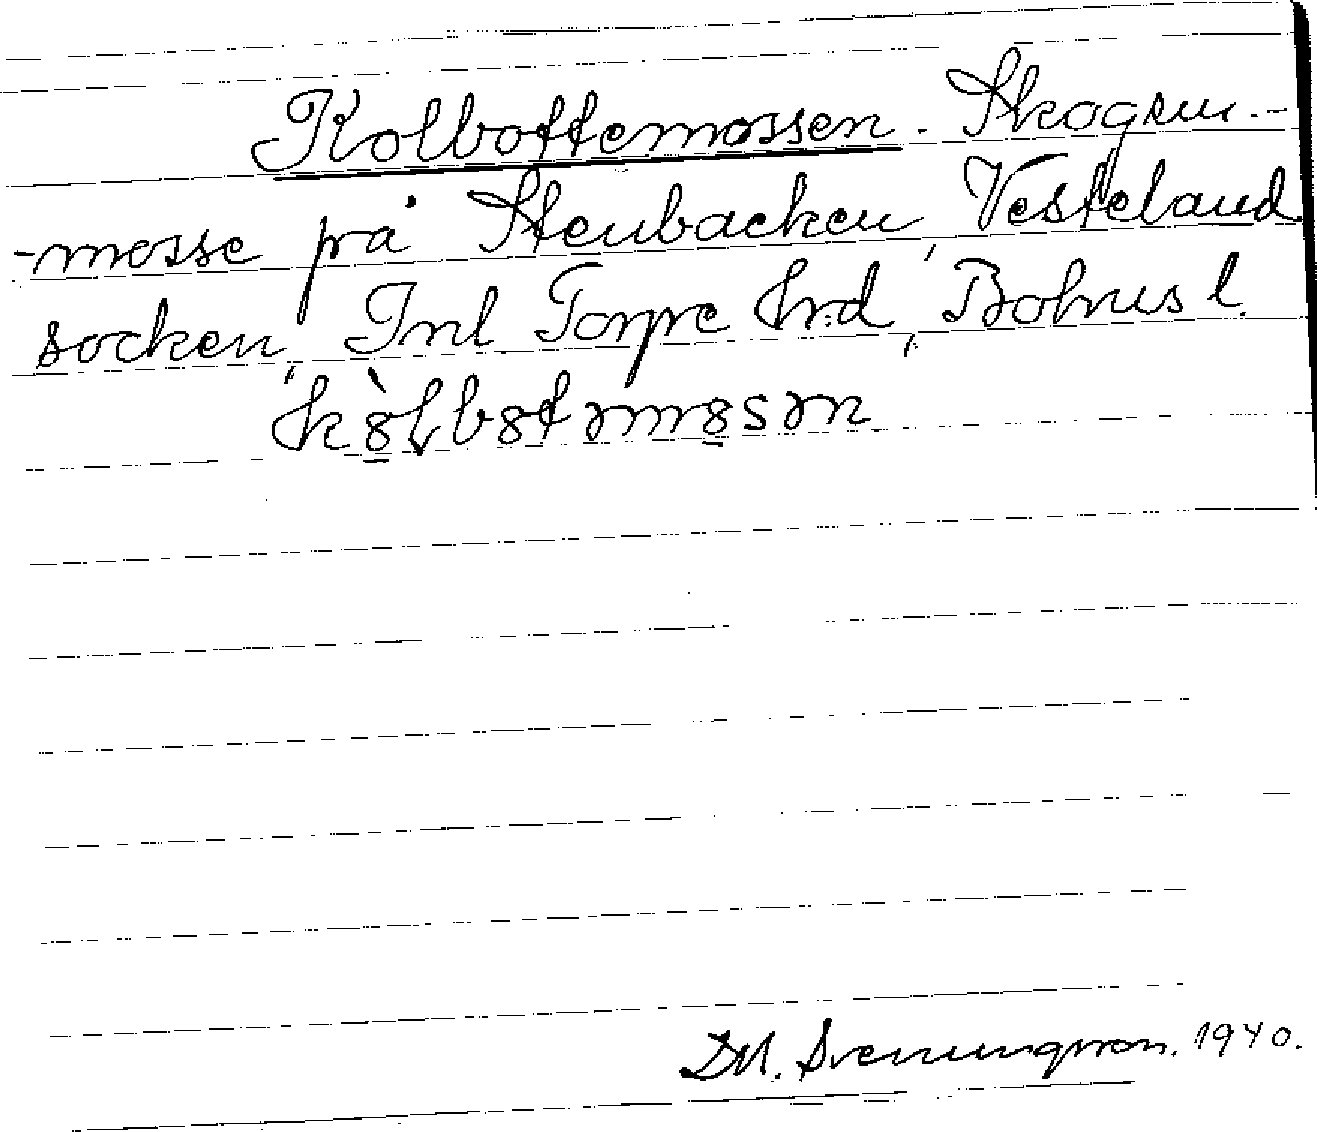 Kolbottemossen. Skogsm.-
-mosse på Stenbacken, Vesteland
socken, Inl Torpe Hrd, Bohusl.
kòlbotəmosən
DM. Svenungsson. 1940.